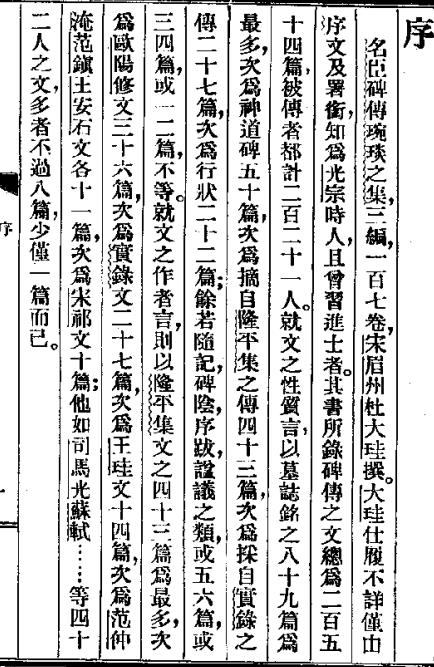 序
名臣碑傳琬琰之集，三編，一百七卷，宋眉州杜大珪撰。大珪仕履不詳，僅由
序文及署銜，知爲光宗時人，且曾習進士者。其書所錄碑傳之文總爲二百五
十四篇，被傳者都計二百二十一人。就文之性質言，以墓誌銘之八十九篇爲
最多，次爲神道碑五十篇，次爲摘自隆平集之傳四十三篇，次爲採自實錄之
傳二十七篇，次爲行狀二十二篇；餘若隨記，碑陰，序跋，謚議之類，或五六篇，或
三四篇，或一二篇不等。就文之作者言，則以隆平集文之四十三篇爲最多，次
爲歐陽修文三十六篇，次爲實錄文二十七篇，次爲王珪文十四篇，次爲范仲
淹范鎭王安石文各十一篇，次爲宋祁文十篇；他如司馬光蘇軾……等四十
二人之文，多者不過八篇，少僅一篇而已。
序
一